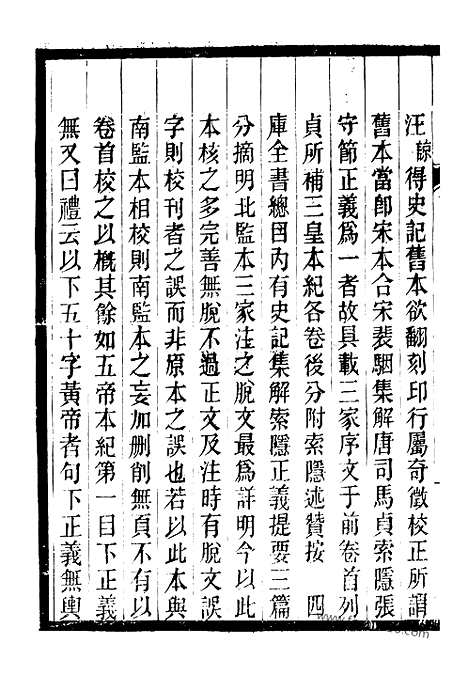 汪諒得史記舊本欲翻刻印行屬奇徵校正所謂
舊本當卽宋本合宋裴駰集解唐司馬貞索隱張
守節正義爲一者故具載三家序文于前卷首列
貞所補三皇本紀各卷後分附索隱述贊按　四
庫全書總目內有史記集解索隱正義提要三篇
分摘明北監本三家注之脫文最爲詳明今以此
本核之多完善無脫不過正文及注時有脫文誤
字則校刊者之誤而非原本之誤也若以此本與
南監本相校則南監本之妄加刪削無頁不有以
卷首校之以槪其餘如五帝本紀第一目下正義
無又曰禮云以下五十字黃帝者句下正義無輿